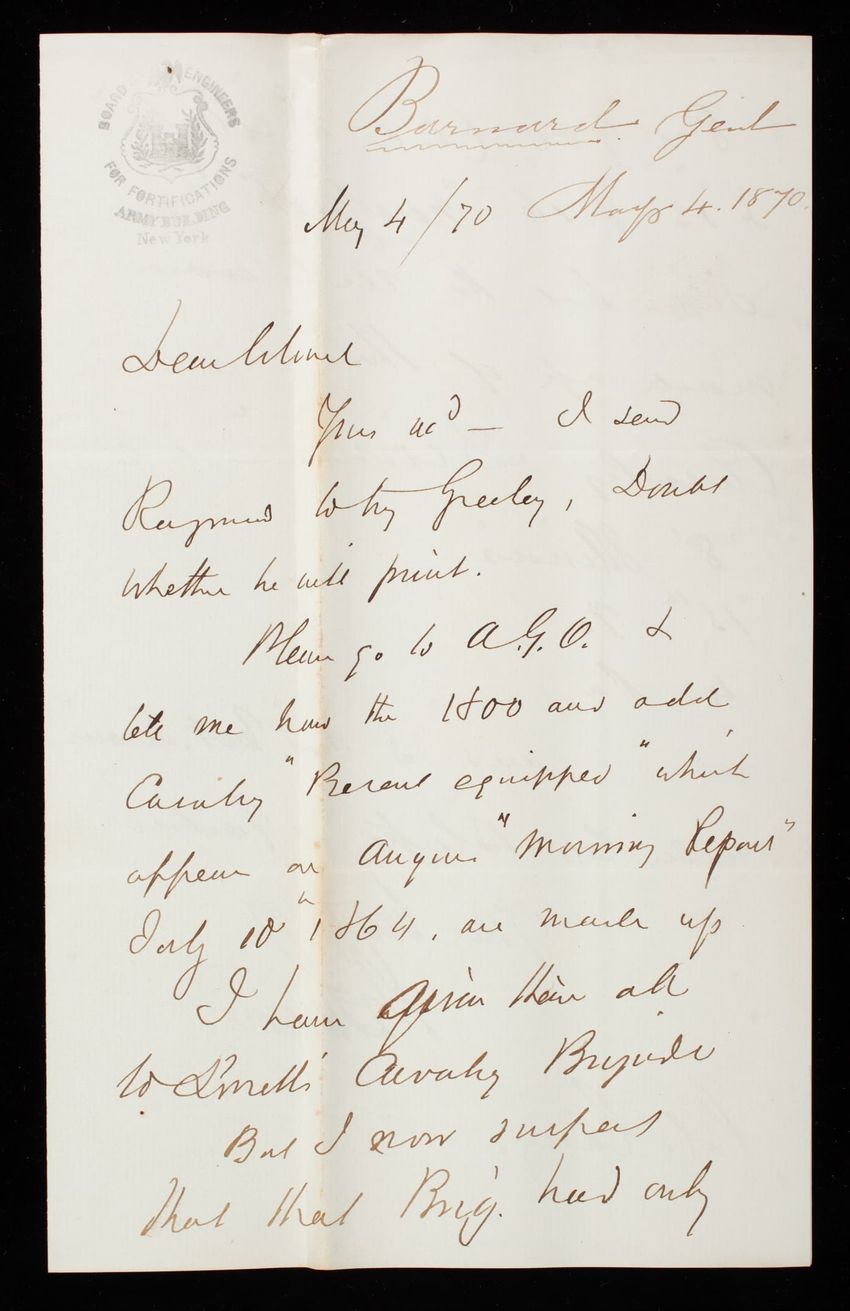 BOARD ENGINEERS
FOR FORTIFICATIONS
ARMY BUILDING
New York
Barnard Genl
May 4/70 May 4. 1870.
Dear Colonel
Yours recd — I send
to Greeley, Doubt
whether he will print.
Please go to A.G.O. &
let me know how the 1800 and odd
Cavalry "Present equipped" which
appear on Augurs "Morning Report"
July 10th 1864, are made up
I have given them all
to Lowell's Cavalry Brigade
But I now suspect
that that Brig. had only